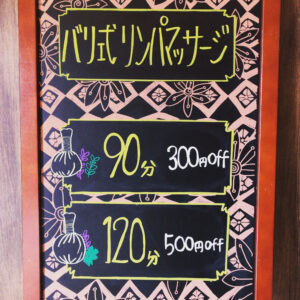 バリ式リンパマッサージ
90分 300円off
120分 500円off